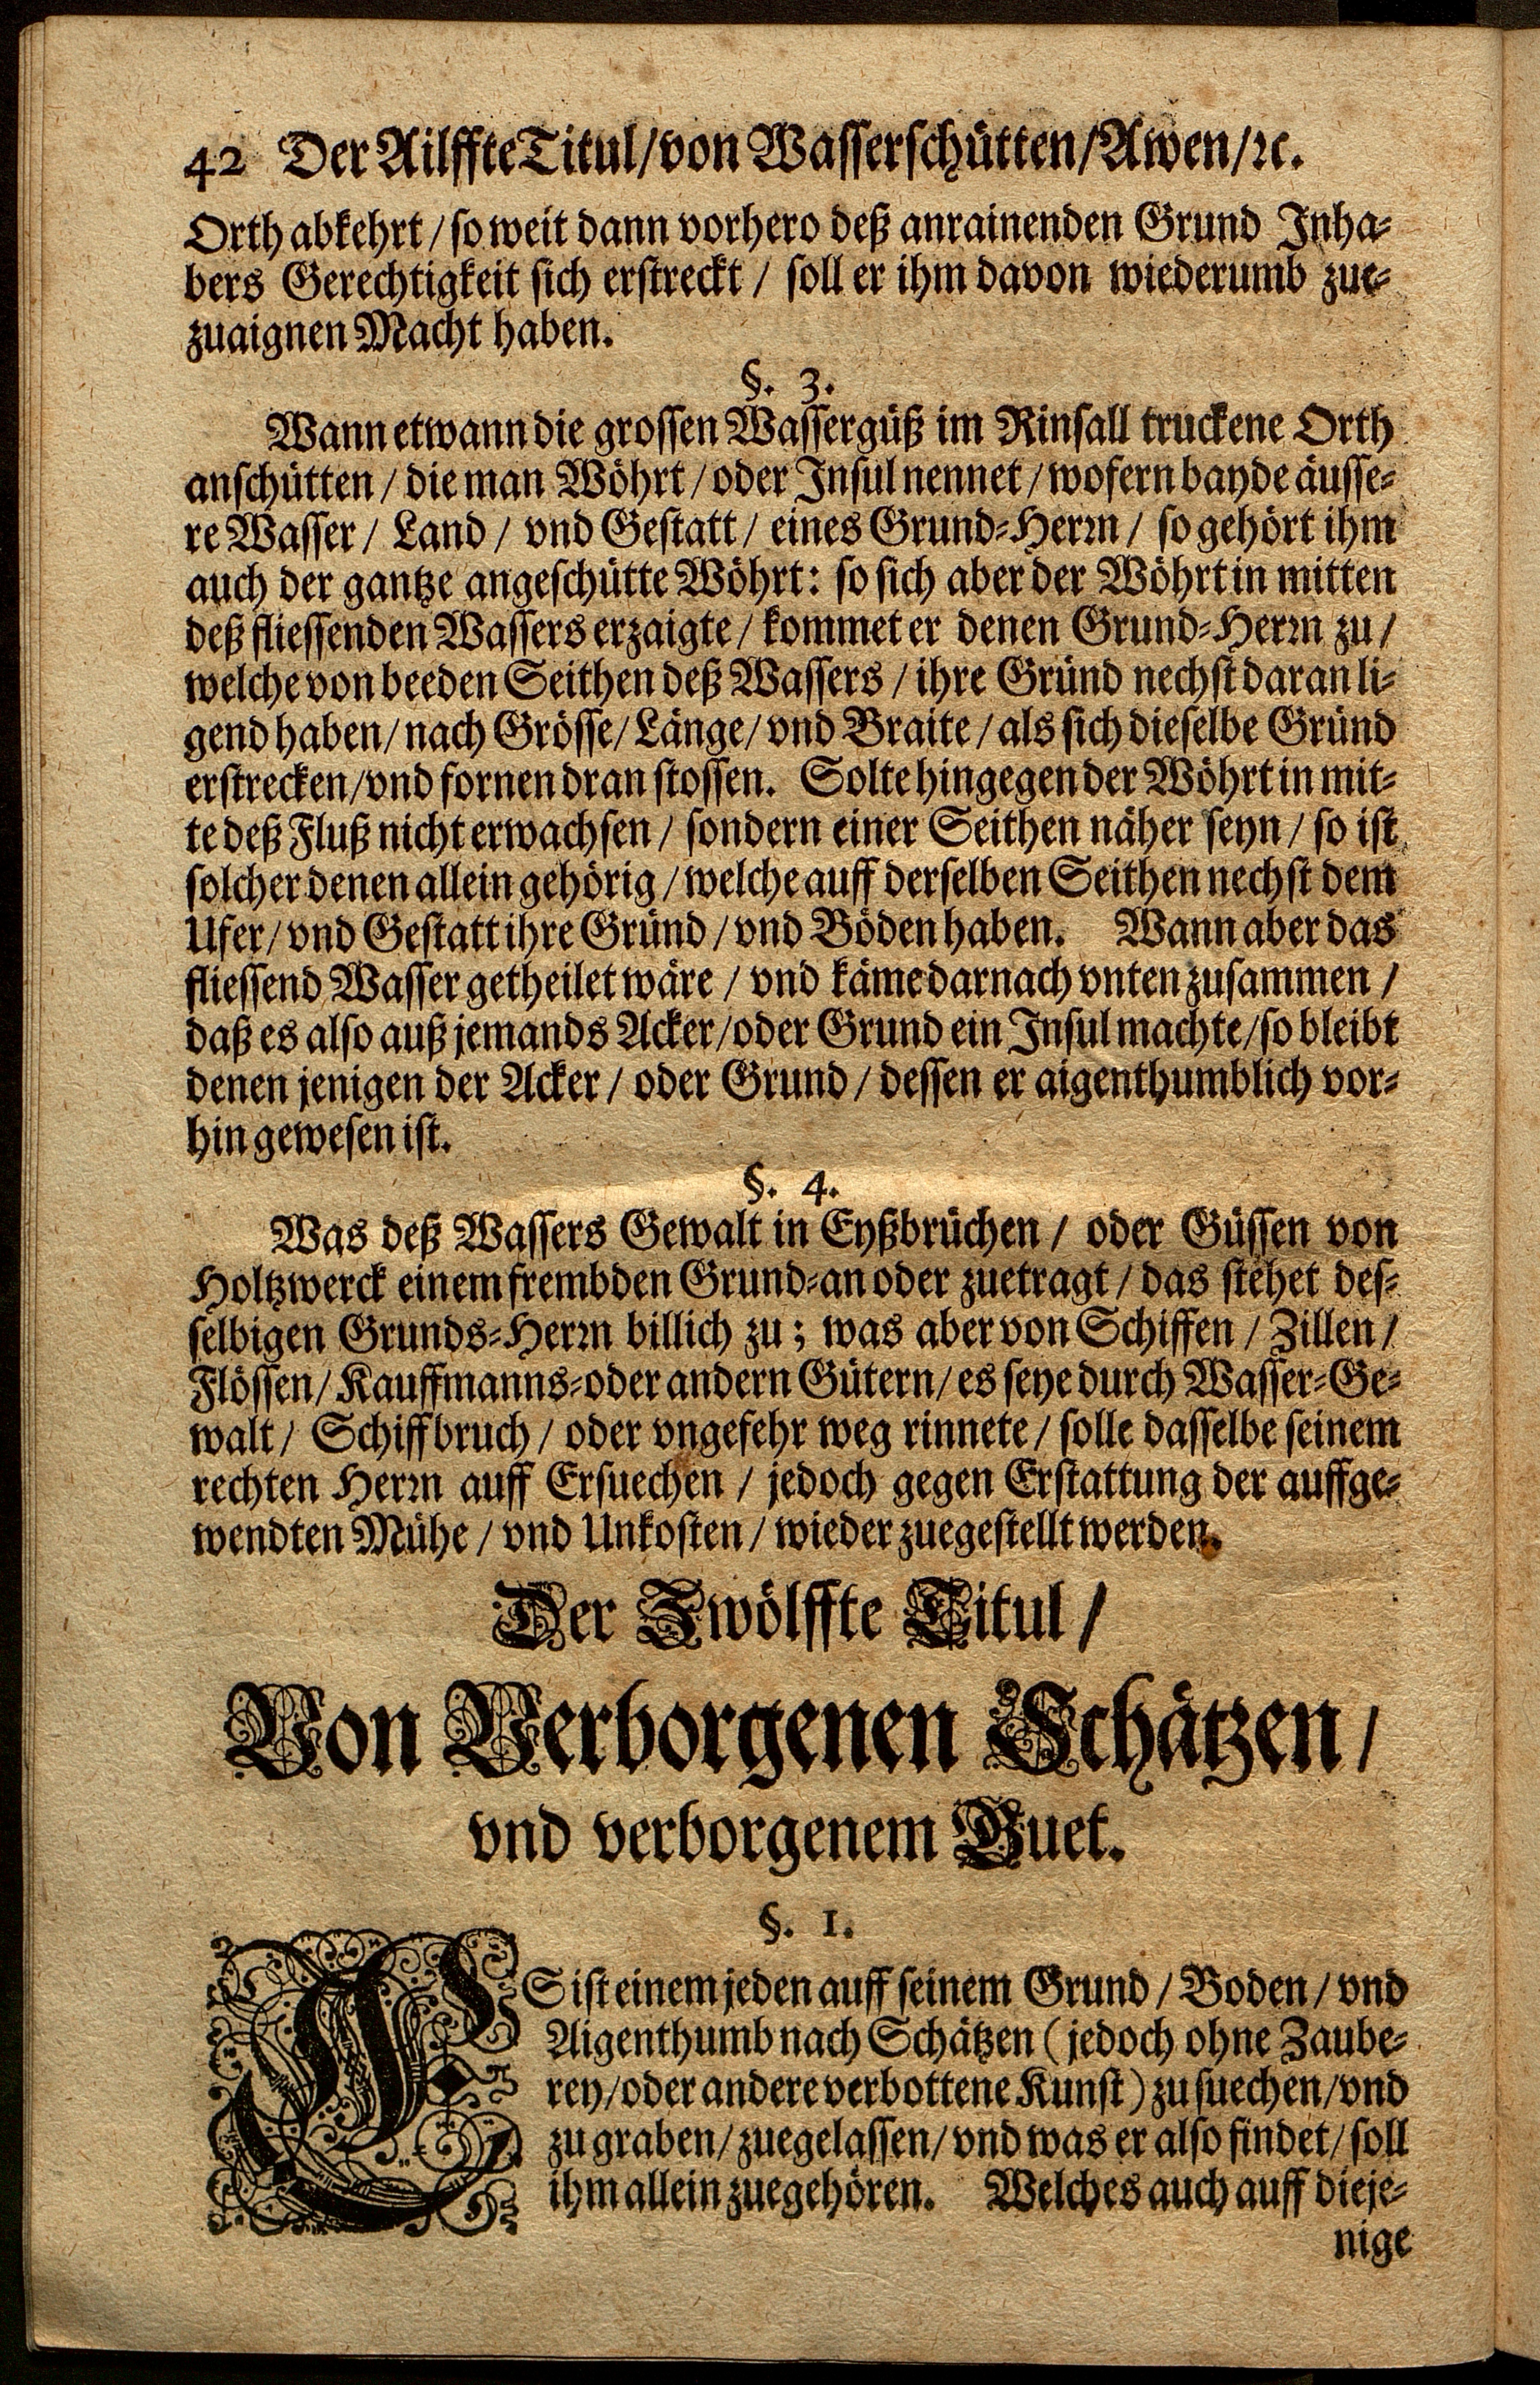 42 Der Ailffte Titul/von Wasserschütten/Awen/ꝛc.
Orth abkehrt / so weit dann vorhero deß anrainenden Grund Inha-
bers Gerechtigkeit sich erstreckt / soll er ihm davon wiederumb zue-
zuaignen Macht haben.
§. 3.
Wann etwann die grossen Wassergüß im Rinsall truckene Orth
anschütten / die man Wöhrt / oder Insul nennet / wofern bayde äusse-
re Wasser / Land / vnd Gestatt / eines Grund-Herrn / so gehört ihm
auch der gantze angeschütte Wöhrt: so sich aber der Wöhrt in mitten
deß fliessenden Wassers erzaigte / kommet er denen Grund-Herrn zu /
welche von beeden Seithen deß Wassers / ihre Gründ nechst daran li-
gend haben / nach Grösse / Länge / vnd Braite / als sich dieselbe Gründ
erstrecken / vnd fornen dran stossen. Solte hingegen der Wöhrt in mit-
te deß Fluß nicht erwachsen / sondern einer Seithen näher seyn / so ist
solcher denen allein gehörig / welche auff derselben Seithen nechst dem
Ufer / vnd Gestatt ihre Gründ / vnd Böden haben. Wann aber das
fliessend Wasser getheilet wäre / vnd käme darnach vnten zusammen /
daß es also auß jemands Acker / oder Grund ein Insul machte / so bleibt
denen jenigen der Acker / oder Grund / dessen er aigenthumblich vor-
hin gewesen ist.
§. 4.
Was deß Wassers Gewalt in Eyßbrüchen / oder Güssen von
Holtzwerck einem frembden Grund-an oder zuetragt / das stehet des-
selbigen Grunds-Herrn billich zu; was aber von Schiffen / Zillen /
Flössen / Kauffmanns-oder andern Gütern / es seye durch Wasser-Ge-
walt / Schiffbruch / oder vngefehr weg rinnete / solle dasselbe seinem
rechten Herrn auff Ersuechen / jedoch gegen Erstattung der auffge-
wendten Mühe / vnd Unkosten / wieder zuegestellt werden.
Der Zwölffte Titul /
Von Verborgenen Schätzen /
vnd verborgenem Guet.
§. 1.
ES ist einem jeden auff seinem Grund / Boden / vnd
Aigenthumb nach Schätzen (jedoch ohne Zaube-
rey / oder andere verbottene Kunst) zu suechen / vnd
zu graben / zuegelassen / vnd was er also findet / soll
ihm allein zuegehören. Welches auch auff dieje-
nige